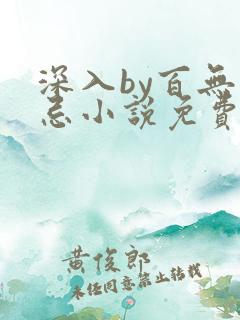 深入by百無
忌小說免費
黄俊郎
未经同意禁止转载